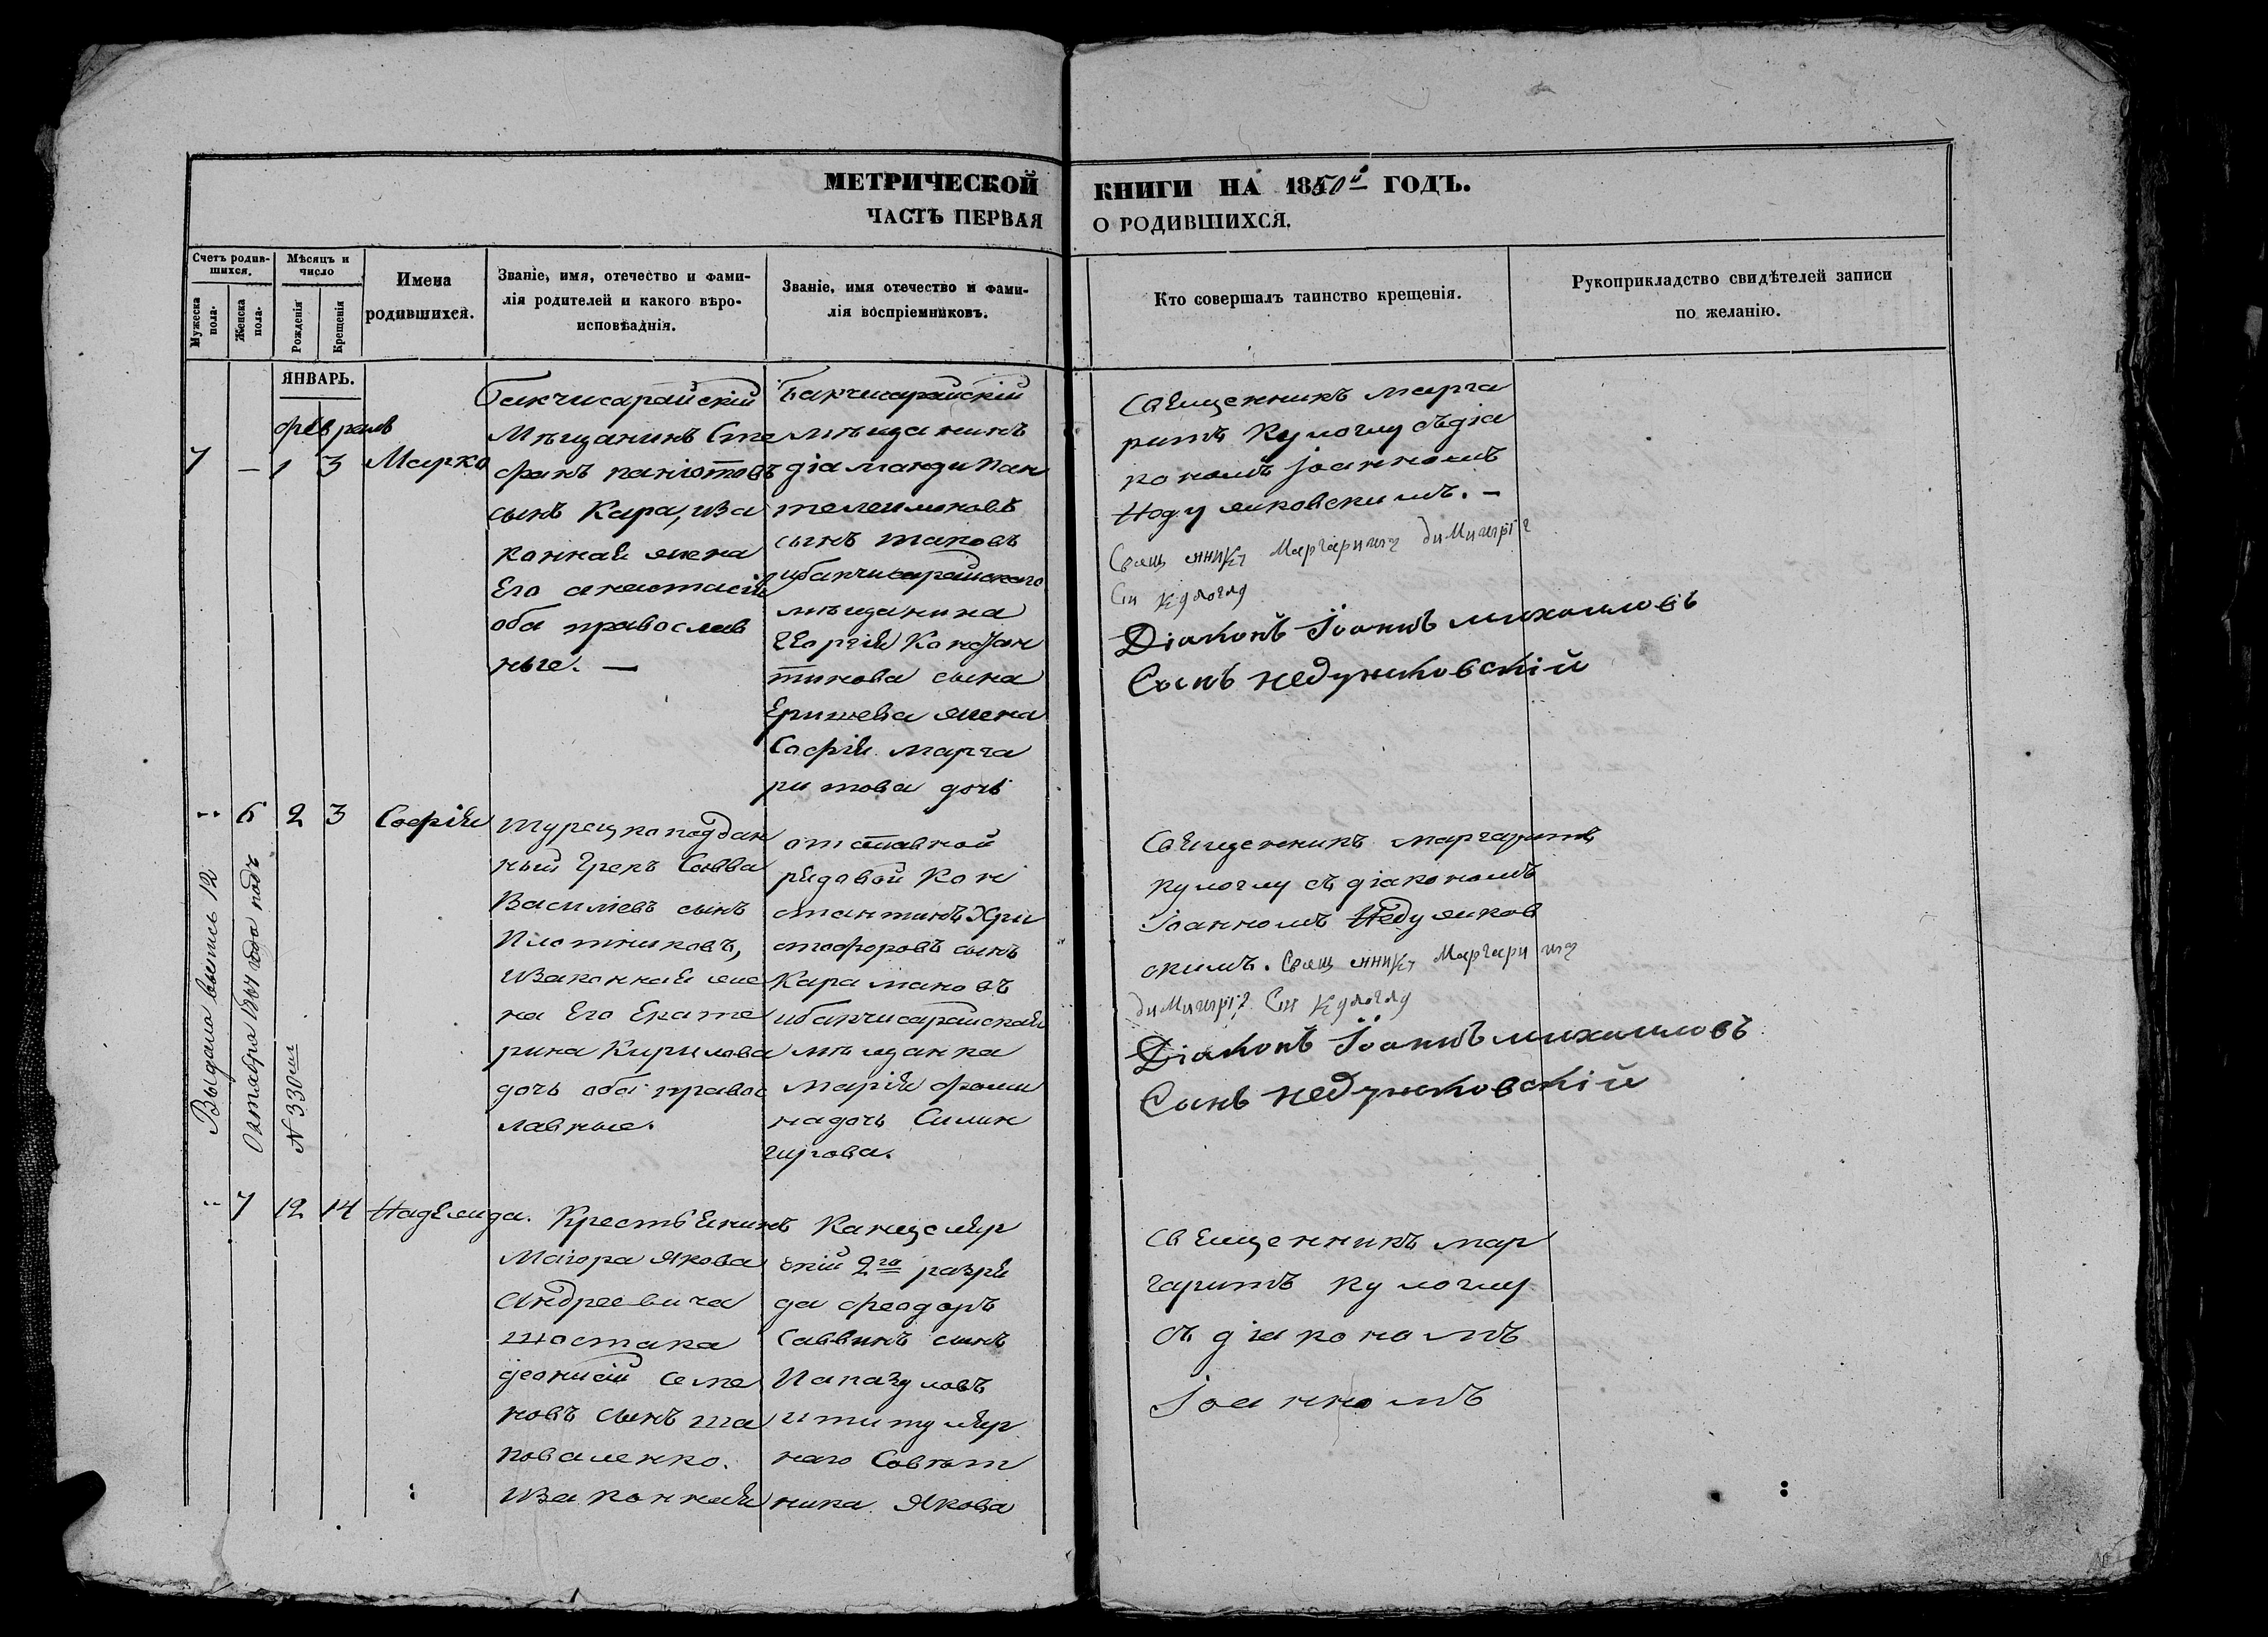 МЕТРИЧЕСКОЙ КНИГИ НА 1850й ГОДЪ.
ЧАСТЬ ПЕРВАЯ О РОДИВШИХСЯ.
Счетъ родив-
шихся.
Мужеска
пола.
Женска
пола.
Мѣсяцъ и
число
Рожденія
Крещенія
Имена
родившихся.
Званіе, имя, отечество и фами-
лія родителей и какого вѣро-
исповѣаднія.
Званіе, имя отечество и фами-
лія воспріемниковъ.
Кто совершалъ таинство крещенія.
Рукоприкладство свидѣтелей записи
по желанію.
ЯНВАРЬ.
февраль
7 — 1 3 Марко
Бакчисарайскій
Мѣщанинъ Сте
фанъ паніотовъ
сынъ Кара, иза
конная жена
Его анастасія
оба православ
ные. —
Бакчисарайскій
мѣщанинъ
діаманди пан
телеимоновъ
сынъ таковъ
ибакчисарайскаго
мѣщанина
Георгія Констан
тинова сына
Еришева жена
Софія марга
ритова дочь
Священникъ марга
ритъ Кулоглу съдіа
кономъ Іоанномъ
Недужковскимъ. —
Священникъ Маргаритъ димитрі
Сн Кулоглу
Діаконъ Іоаннъ михаиловъ
Сынъ недужковскій
6 2 3 Софія
турецкоподдан
ный Грекъ Савва
Василіевъ сынъ
Плотниковъ,
изаконная же
на Его Екате
рина Кирилова
дочь оба правос
лавные.
отставной
рядовой Кон
стантинъ Хри
стофоровъ сынъ
Карамановъ
ибакчисарайская
мѣщанка
марія фоми
надочь Симин
гирова.
Священникъ маргаритъ
кулоглу съ діакономъ
Іоанномъ Недужков
скимъ. Священникъ Маргаритъ
димитрі Сн Кулоглу
Діаконъ Іоаннъ михаиловъ
Сынъ недужковскій
Выдана выпись 12
Октября 1864 года подъ
N 330мъ
7 12 14 Надежда.
Крестьянинъ
Маіора Якова
Андреевича
шостака
деонисій семе
новъ сынъ ша
поваленко.
изаконная
Канцеляр
скій 2го разря
да феодоръ
саввинъ сынъ
Папазуловъ
ититуляр
наго Совѣт
ника Якова
Священникъ мар
гаритъ кулоглу
съ діакономъ
Іоанномъ